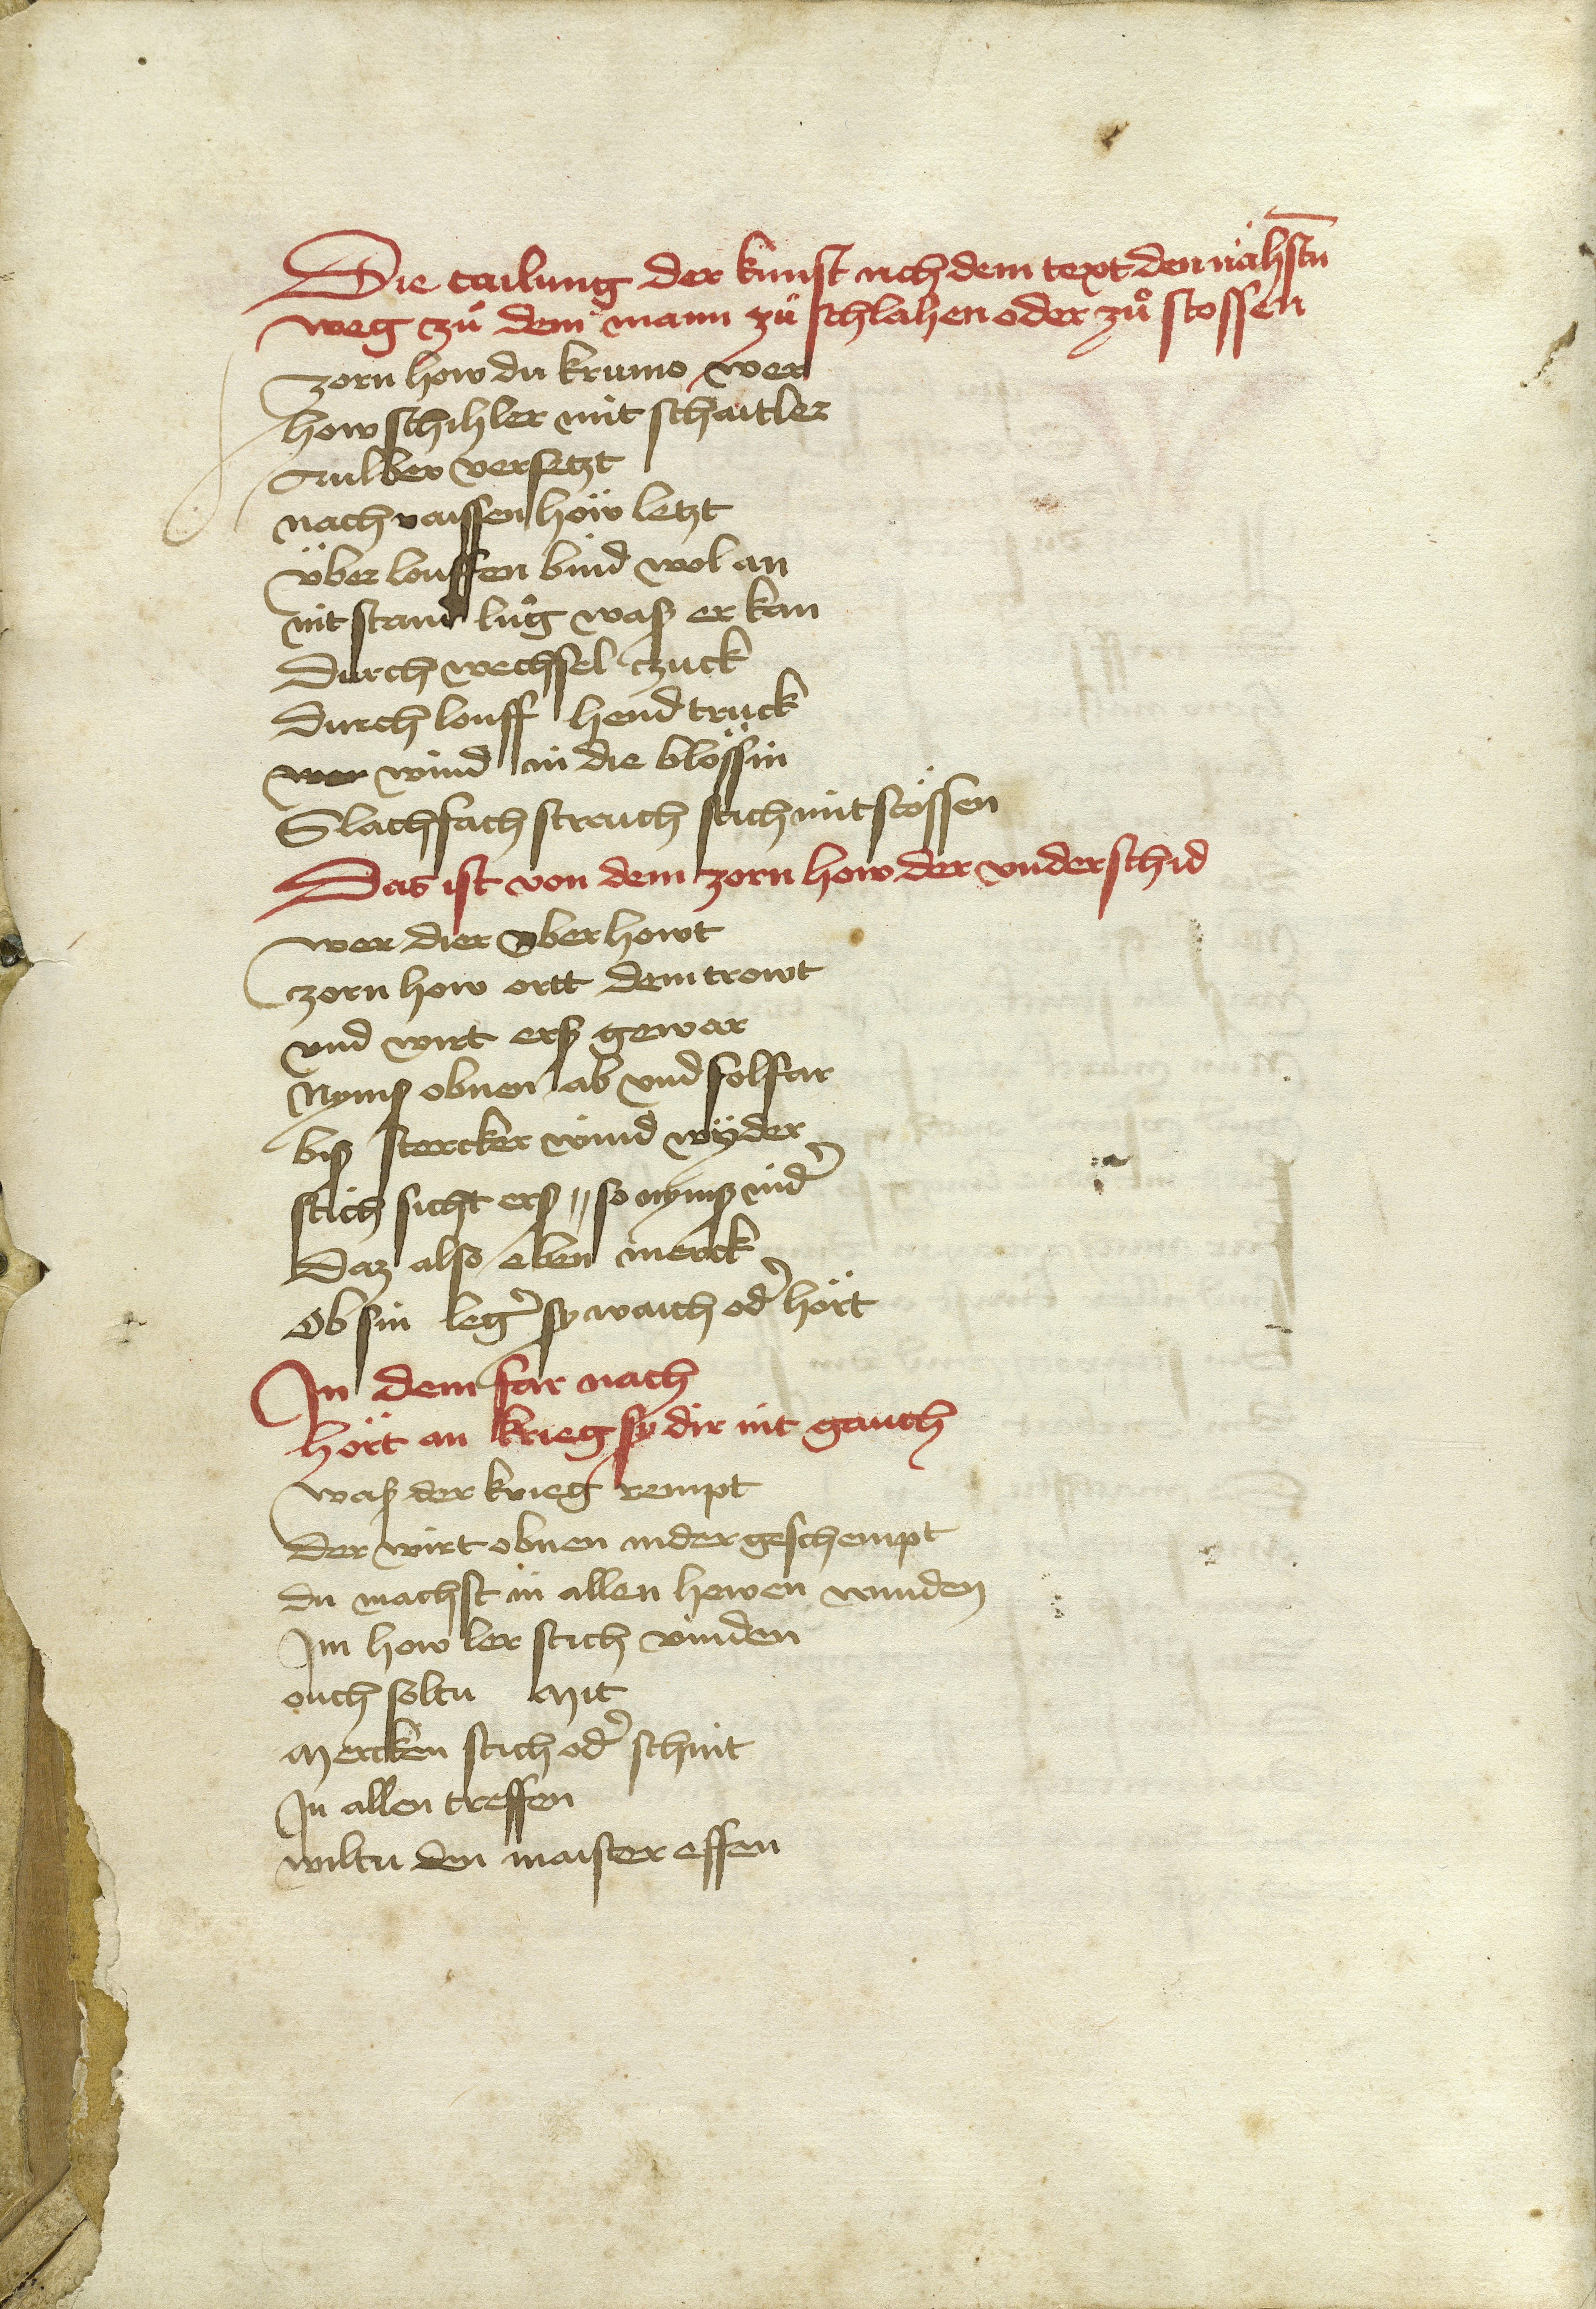 Die tailung der kunst nch dem text den nähstn̄
weg zů dem mann zü schlahen oder zů stossen
zorn how du krumo wer
how schihler mit schaitler
Aulber versetzt
nach raissen höw letzt
über louffen bind wol an
nit stand lůg waß er kan
durch wechsel czuck
durch louff hend truck
wer wind in die blössin
Slach fach streich stich mit stössen
Das ist von dem zorn how der underschid
wer dier oberhowt
zorn how ortt dem trowt
vnd wirt erß gewar
Nymß obnen ab vnd solfar
biß stercker wind wÿder
stich sicht erß // so nymß nid̓
Daz also eben merck
Ob sin leg̓ sy waich od̓ hört
In dem far nach
hört an krieg sy dir nit gauch
waß der krieg rempt
der wirt obnen nider geschempt
du machst in allen hewen wunden
Im how ler stich vinden
ouch soltu Mit
Mercken stich od̓ schnit
In allen treffen
wiltu den maister effen